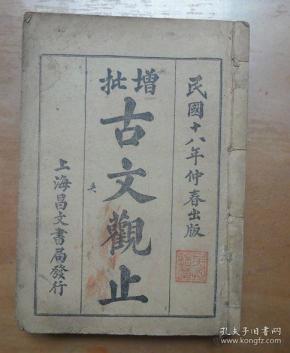 民國十八年仲春出版
增批
古文觀止
上海昌文書局發行
孔夫子旧书网